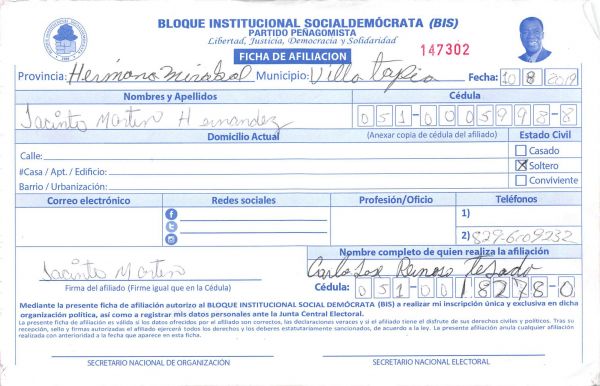 BLOQUE INSTITUCIONAL SOCIALDEMÓCRATA (BIS)
PARTIDO PEÑAGOMISTA
Libertad, Justicia, Democracia y Solidaridad
FICHA DE AFILIACION
147302
Provincia: Hermana Mirabal Municipio: Villa Tapia Fecha: 10 8 2019
Nombres y Apellidos Cédula
Jacinto Martin Hernandez 051-0005998-8
Domicilio Actual (Anexar copia de cédula del afiliado) Estado Civil
Calle: Casado
#Casa / Apt. / Edificio: Soltero
Barrio / Urbanización: Conviviente
Correo electrónico Redes sociales Profesión/Oficio Teléfonos
1)
2) 829-6109232
Nombre completo de quien realiza la afiliación
Jacinto Martin Carlos Jose Reinoso
Firma del afiliado (Firme igual que en la Cédula) Cédula: 051-0018278-0
Mediante la presente ficha de afiliación autorizo al BLOQUE INSTITUCIONAL SOCIAL DEMÓCRATA (BIS) a realizar mi inscripción única y exclusiva en dicha
organización política, así como a registrar mis datos personales ante la Junta Central Electoral.
La presente ficha de afiliación es válida si los datos ofrecidos por el afiliado son correctos, las declaraciones veraces y si el afiliado tiene el disfrute de sus derechos civiles y políticos. Tras su
recepción, sello y firmas autorizadas el afiliado ejercerá todos los derechos y los deberes estatutariamente sancionados, de acuerdo a la ley. La presente afiliación anula cualquier afiliación
realizada con anterioridad a la fecha que aparece en esta ficha.
SECRETARIO NACIONAL DE ORGANIZACIÓN SECRETARIO NACIONAL ELECTORAL